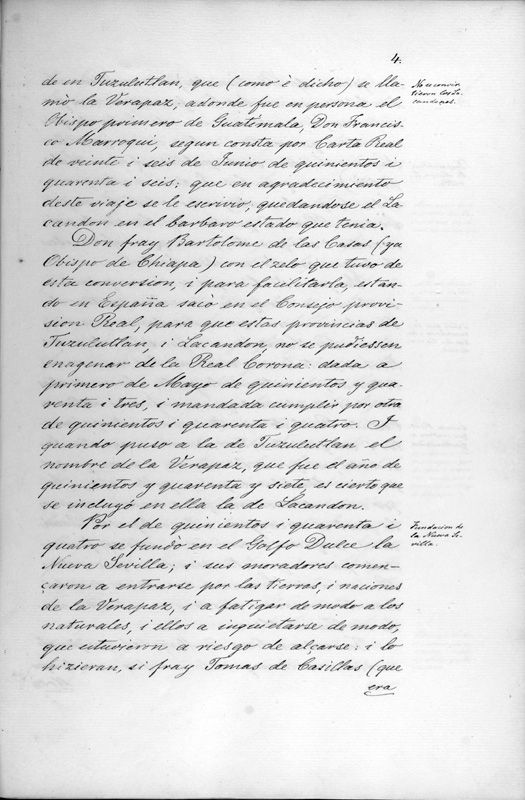 4.
de en Tuzulutlan, que (como è dicho) se lla-
mò la Verapaz, adonde fue en persona el
Obispo primero de Guatemala, Don Francis-
co Marroqui, segun consta por Carta Real
de veinte i seis de Junio de quinientos i
quarenta i seis: que en agradecimiento
deste viaje se le escrivio, quedandose el La-
candon en el barbaro estado que tenia.
Don fray Bartolome de las Casas (ya
Obispo de Chiapa) con el zelo que tuvo de
esta conversion, i para facilitarla, estan-
do en España sacò en el Consejo provi-
sion Real, para que estas provincias de
Tuzulutlan, i Lacandon, no se pudiessen
enagenar de la Real Corona: dada a
primero de Mayo de quinientos y qua-
renta i tres, i mandada cumplir por otra
de quinientos i quarenta i quatro. I
quando puso a la de Tuzulutlan el
nombre de la Verapaz, que fue el año de
quinientos y quarenta y siete, es cierto que
se incluyò en ella la de Lacandon.
Por el de quinientos i quarenta i
quatro se fundò en el Golfo Dulce la
Nueva Sevilla; i sus moradores comen-
çaron a entrarse por las tierras, i naciones
de la Verapaz, i a fatigar de modo a los
naturales, i ellos a inquietarse de modo,
que estuvieron a riesgo de alçarse: i lo
hizieran, si fray Tomas de Casillas (que
era
No se convir
tieron los La-
candones.
Fundacion de
la Nueva Se-
villa.